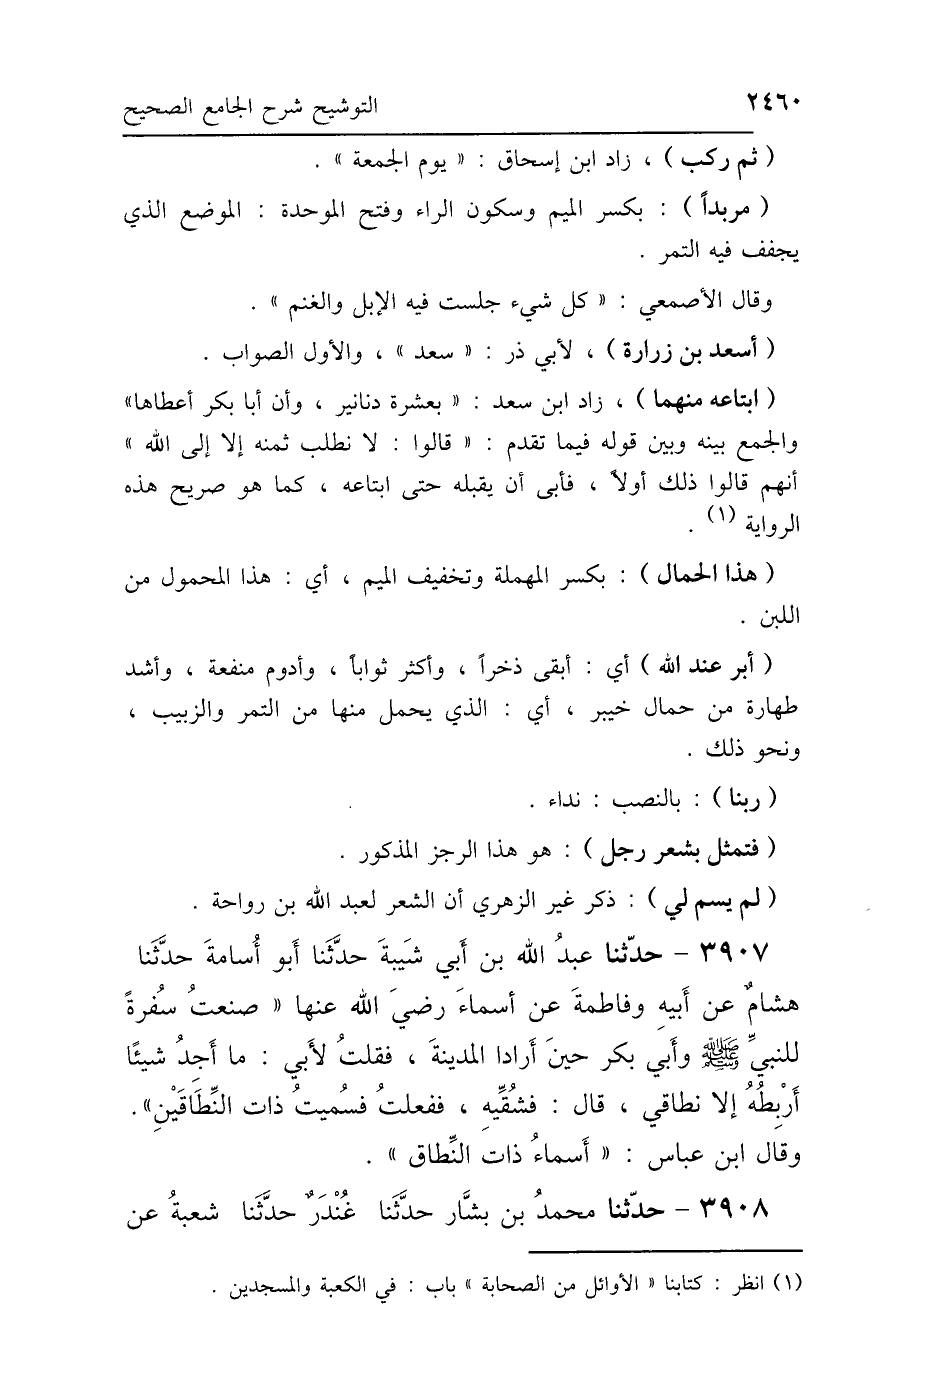 ٢٤٦٠ التوشيح شرح الجامع الصحيح
( ثم ركب ) ، زاد ابن إسحاق : « يوم الجمعة » .
( مربداً ) : بكسر الميم وسكون الراء وفتح الموحدة : الموضع الذي
يجفف فيه التمر .
وقال الأصمعي : « كل شيء جلست فيه الإبل والغنم » .
( أسعد بن زرارة ) ، لأبي ذر : « سعد » ، والأول الصواب .
( ابتاعه منهما ) ، زاد ابن سعد : « بعشرة دنانير ، وأن أبا بكر أعطاها»
والجمع بينه وبين قوله فيما تقدم : « قالوا : لا نطلب ثمنه إلا إلى الله »
أنهم قالوا ذلك أولاً ، فأبى أن يقبله حتى ابتاعه ، كما هو صريح هذه
الرواية (١) .
( هذا الحمال ) : بكسر المهملة وتخفيف الميم ، أي : هذا المحمول من
اللبن .
( أبر عند الله ) أي : أبقى ذخراً ، وأكثر ثواباً ، وأدوم منفعة ، وأشد
طهارة من حمال خيبر ، أي : الذي يحمل منها من التمر والزبيب ،
ونحو ذلك .
( ربنا ) : بالنصب : نداء .
( فتمثل بشعر رجل ) : هو هذا الرجز المذكور .
( لم يسم لي ) : ذكر غير الزهري أن الشعر لعبد الله بن رواحة .
٣٩٠٧ - حدّثنا عبدُ الله بن أَبي شَيبةَ حدَّثَنا أَبو أُسامةَ حدَّثَنا
هشامٌ عن أَبيهِ وفاطمةَ عن أسماءَ رضيَ الله عنها « صنعتُ سُفرةً
للنبيِّ ﷺ وأَبي بكر حينَ أَرادا المدينةَ ، فقلتُ لأَبي : ما أَجِدُ شيئًا
أَرْبِطُهُ إلا نطاقي ، قال : فشُقِّيهِ ، ففعلتُ فسُميتُ ذات النِّطَاقَيْنِ».
وقال ابن عباس : « أَسماءُ ذات النِّطاق » .
٣٩٠٨ - حدّثنا محمدُ بن بشَّار حدَّثَنا غُنْدَرٌ حدَّثَنا شعبةُ عن
(١) انظر : كتابنا « الأوائل من الصحابة » باب : في الكعبة والمسجدين .